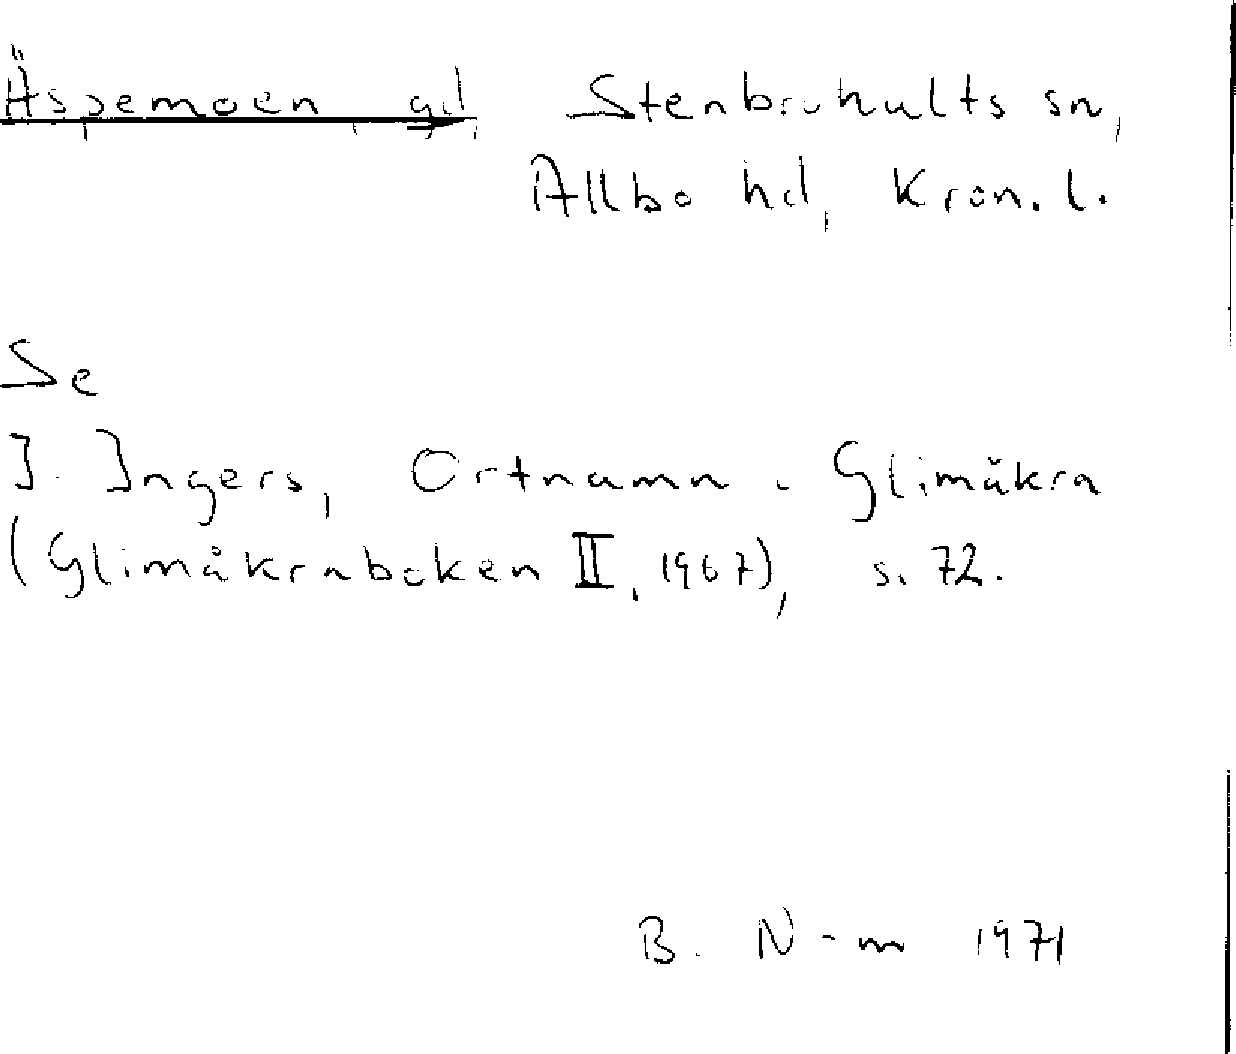 Äspemoen, gd, Stenbrohults sn,
Allbo hd, Kron. l.
Se
I. Ingers, Ortnamn i Glimåkra
(Glimåkraboken II, 1967), s. 72.
B. N-m 1971